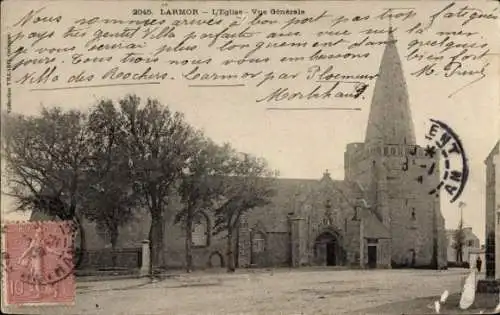 2045. LARMOR - L'Eglise - Vue Générale
Nous sommes arrivés à bon port pas trop fatigués
pays très gentil villa parfaite avec vue sur la mer
je vous écrirai plus longuement dans quelques
jours. tous nous vous embrassons
Villa des Rochers Larmor par Ploemeur
Morbihan
Collection